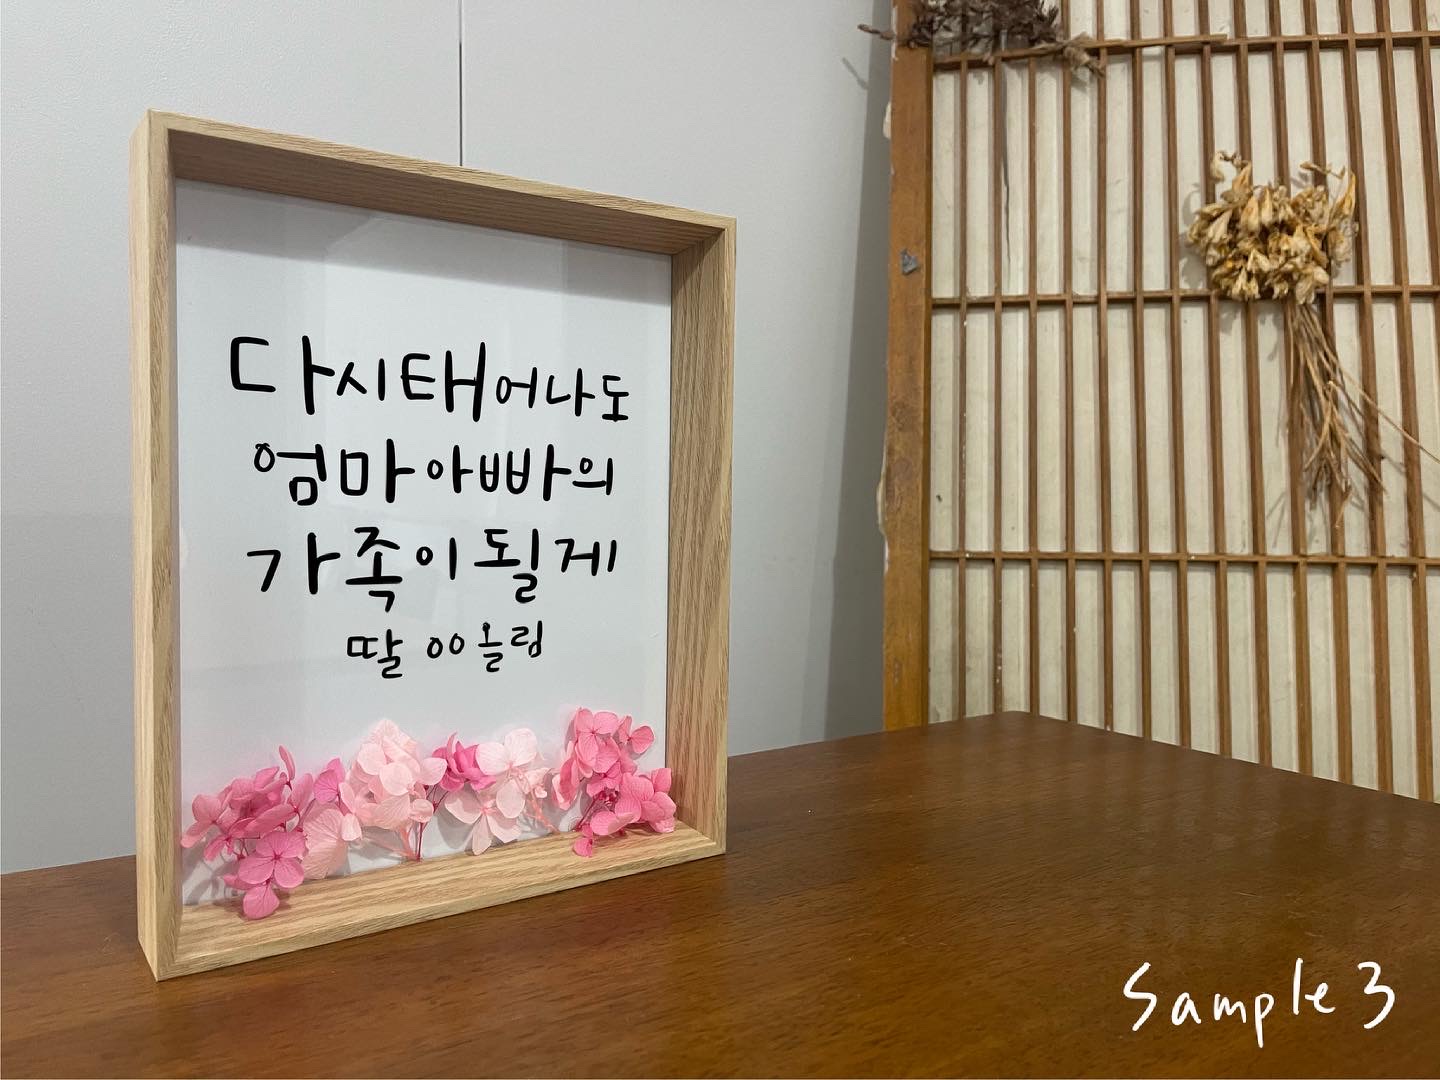 다시태어나도
엄마아빠의
가족이될게
딸 00올림
Sample 3